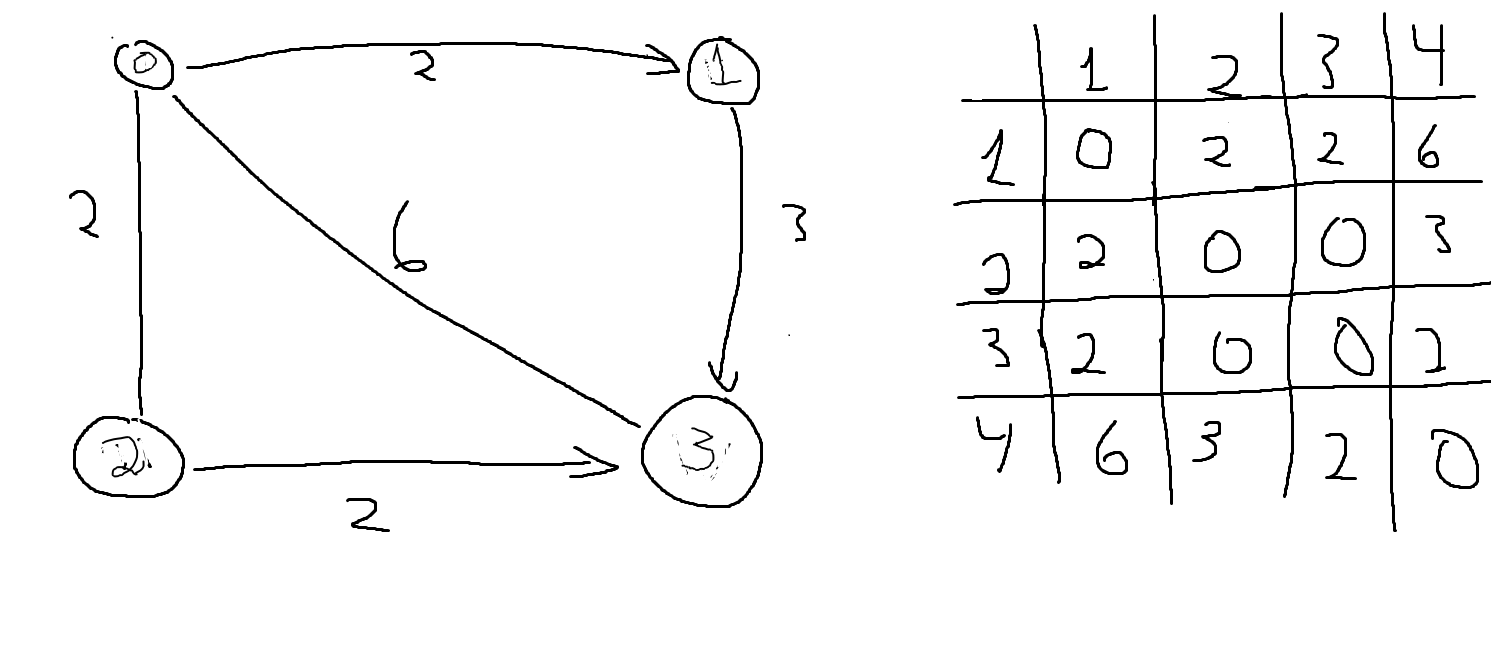 0 2 1
2 6 3
2 2 3
1 2 3 4
1 0 2 2 6
2 2 0 0 3
3 2 0 0 2
4 6 3 2 0